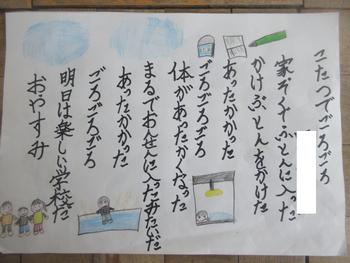 こたつでごろごろ
家ぞくでふとんに入った
かけぶとんをかけた
あったかかった
ごろごろごろ
体があったかくなった
まるでおんせんに入ったみたいだ
あったかかった
ごろごろごろ
明日は楽しい学校だ
おやすみ